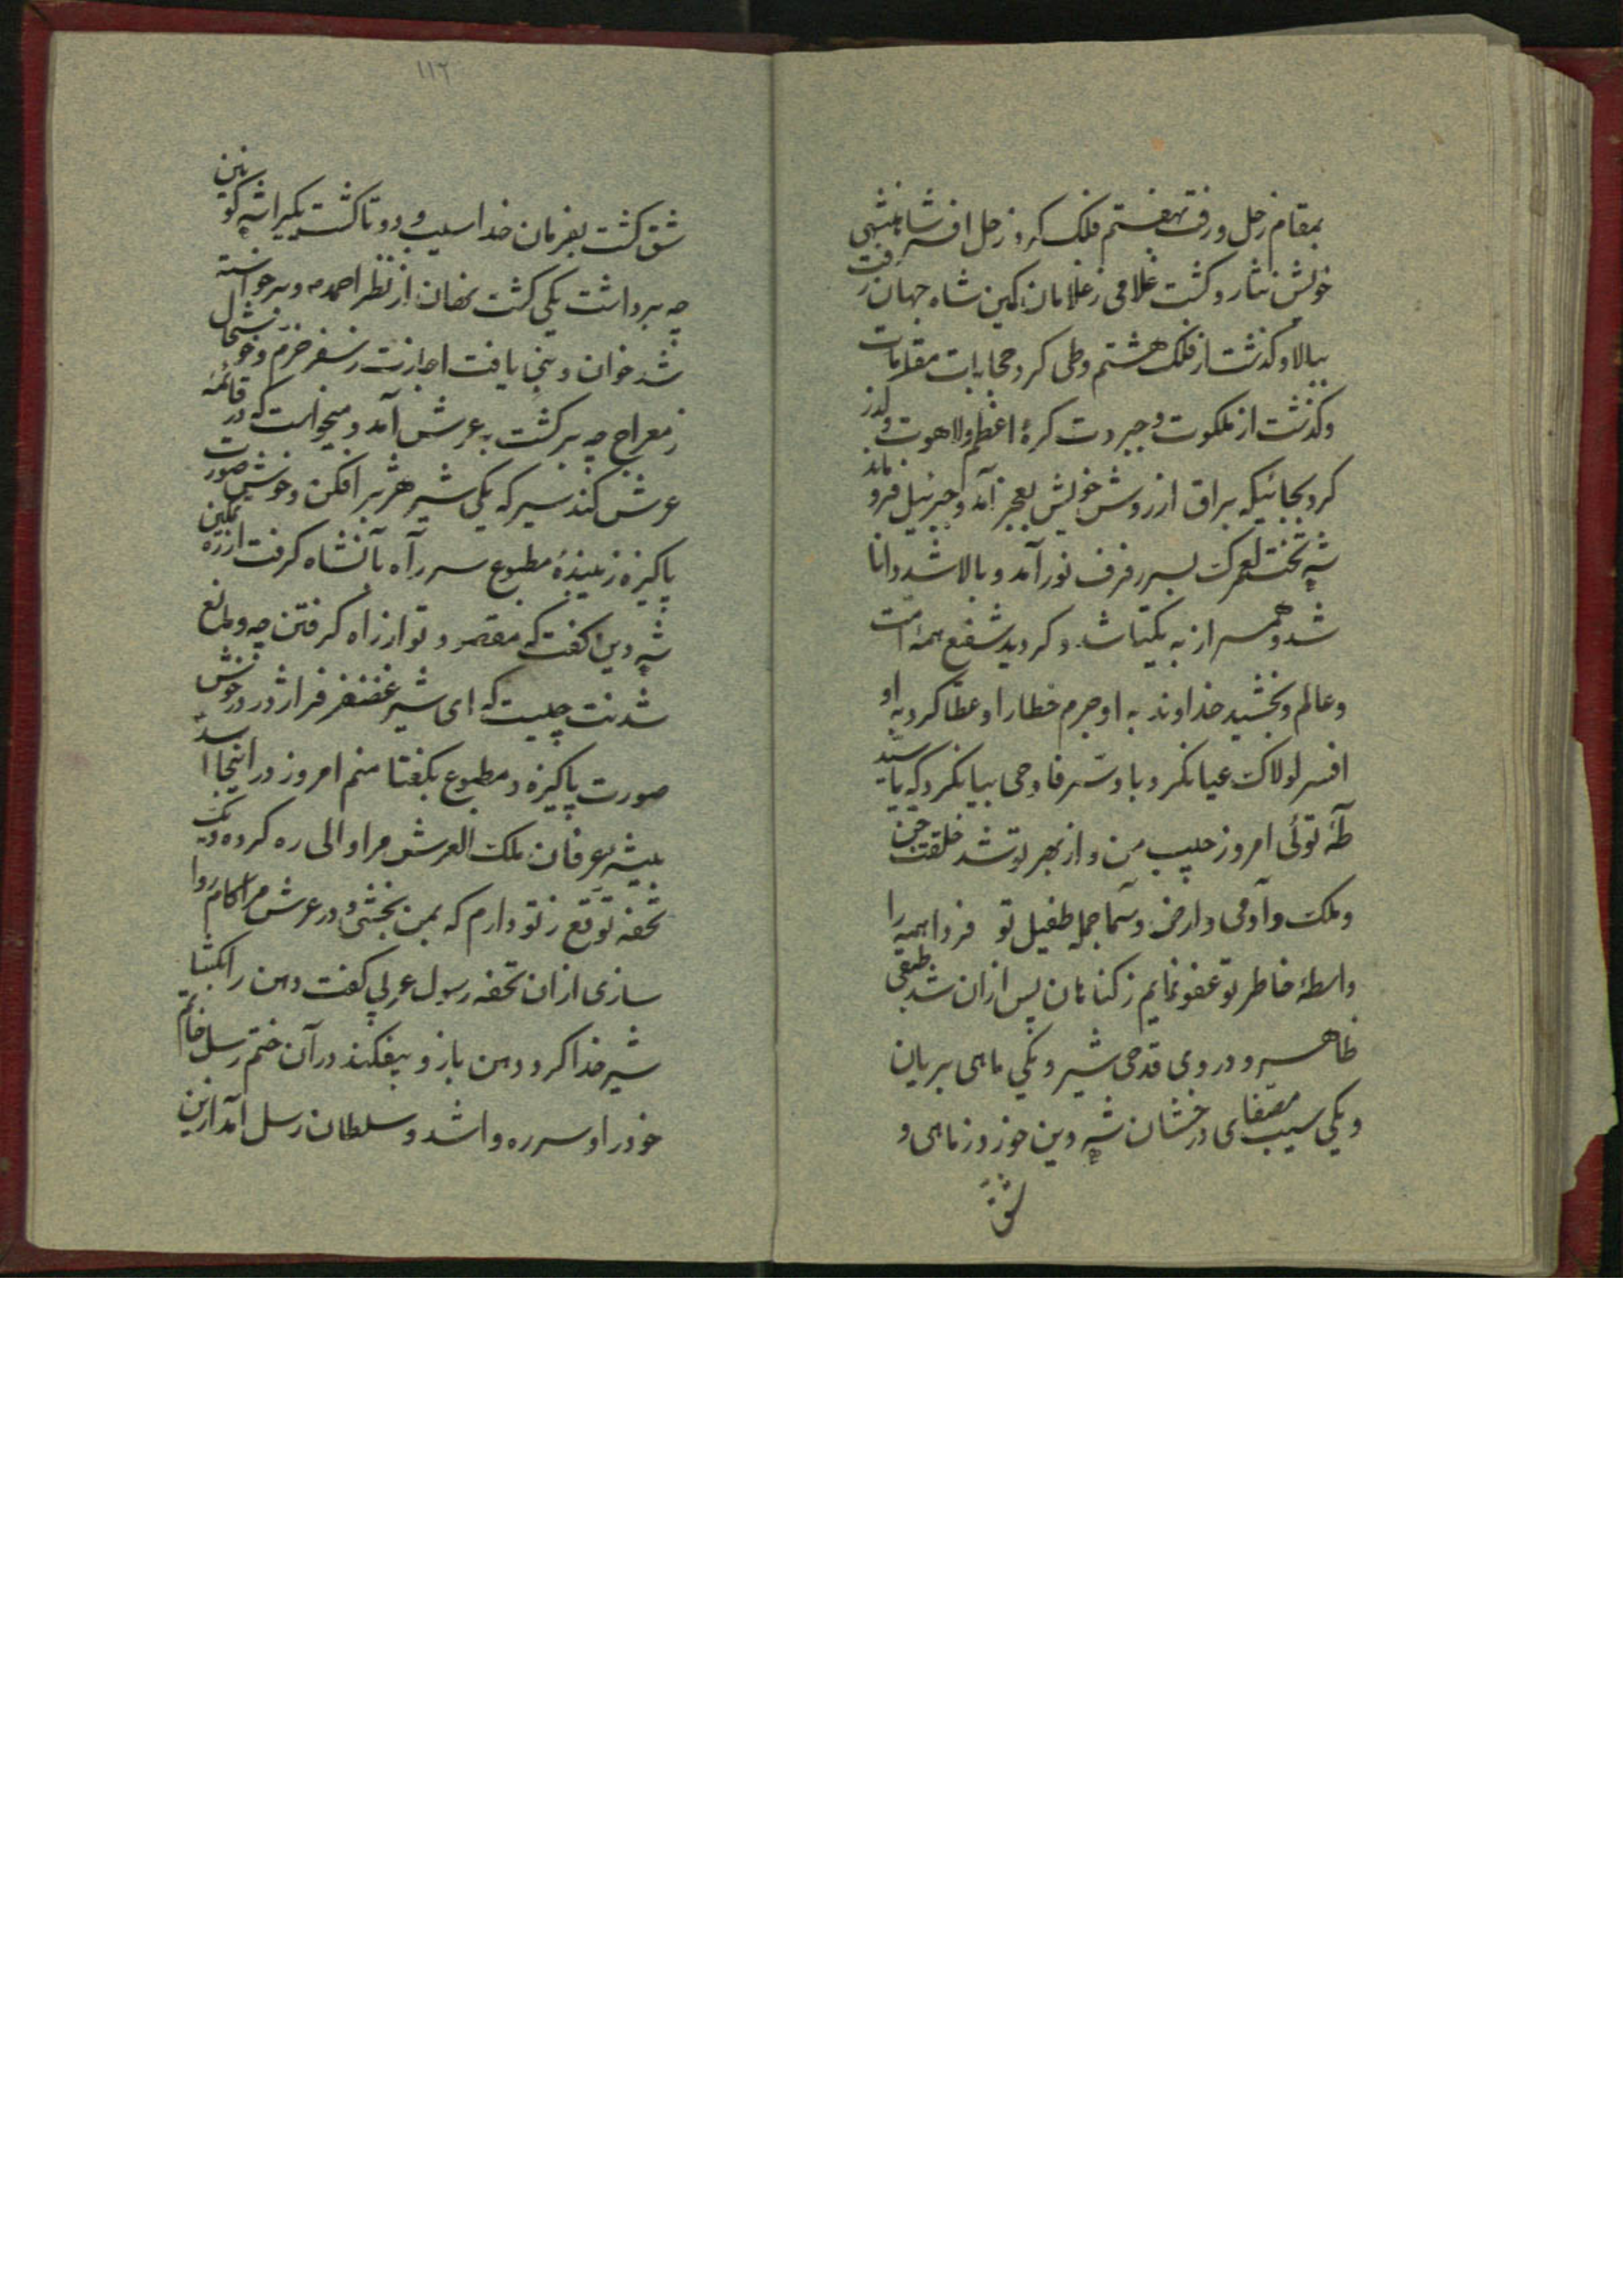 بمقام زحل و رفت بهفتم فلک کرد زحل افسر شاهنشهی
خویش نثار و گشت غلامی ز غلامان کمین شاه جهان رفت
ببالا و گذشت از فلک هشتم و طی کرد حجابات مقامات
و گذشت از ملکوت و جبروت کرهٔ اعظم و لاهوت و گذر
کرد بجائیکه براق از روش خویش بعجز آمد و جبرئیل فرو ماند
شه تخت لعمرک بسر رفرف نور آمد و بالا شد و انا
شد و همسر از به یکتا شد و کردید شفیع همه امت
و عالم و بخشید خداوند به او جرم خطا را و عطا کرد به او
افسر لولاک عیانکرد با و سر فاوحی بیانکرد که یا سید
طه توئی امروز حبیب من و از بهر تو شد خلقت جن
و ملک و آدمی و ارض و سما جمله طفیل تو فردا همه را
واسطهٔ خاطر تو عفو نمایم ز کناهان پس ازان شد طبقی
ظاهر و در وی قدحی شیر و یکی ماهی بریان
و یکی سیب مصفای درخشان شه دین خورد ز ماهی و
شق
۱۱۲
شق کشت بفرمان خدا سیب و دو تا کشت یکیرا شه کونین
چه برداشت یکی کشت نهان از نظر احمد و برخواسته
شد خوان و نبی یافت اجازت ز سفر خرم و خوشحال
ز معراج چه برکشت به عرش آمد و میخواست که در قائمهٔ
عرش کند سیر که یکی شیر هژبر افکن و خوش صورت
پاکیزه زیبندهٔ مطبوع سر راه بآنشاه کرفت از ره تمکین
شه دین کفت که مقصود تو از راه کرفتن چه و مانع
شدنت چیست که ای شیر غضنفر فر اژدر در خوش
صورت پاکیزه و مطبوع بکفتا منم امروز در اینجا اسد
بیشه عرفان ملک العرش مرا والی ره کرده و یک
تحفه توقع ز تو دارم که بمن بخشی و در عرش مرا کام روا
سازی ازان تحفه رسول عربی کفت دهن را بکشا
شیر خدا کرد دهن باز و بیفکند در آن ختم رسل خاتم
خود را و سر ره وا شد و سلطان رسل آمد ازین